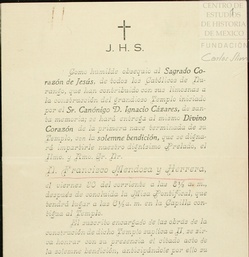 CENTRO DE
ESTUDIOS
DE HISTORIA
DE MEXICO
FUNDACIÓN
J. H. S.
Como humilde obsequio al Sagrado Co-
razón de Jesús, de todos los Católicos de Du-
rango, que han contribuido con sus limosnas a
la construcción del grandioso Templo iniciado
por el Sr. Canónigo D. Ignacio Cázares, de san-
ta memoria; se hará entrega al mismo Divino
Corazón de la primera nave terminada de su
Templo, con la solemne bendición, que se digna-
rá impartirle nuestro dignísimo Prelado, el
Ilmo. y Rmo. Sr. Dr.
D. Francisco Mendoza y Herrera,
el viernes del corriente a las a. m.,
después de cantada la Misa Pontifical, que
tendrá lugar a las a. m. en la Capilla con-
tigua al Templo.
El suscrito encargado de las obras de la
construcción de dicho Templo suplica a U. se sir-
va honrar con su presencia el citado acto de
la solemne bendición, anticipándole por ello su